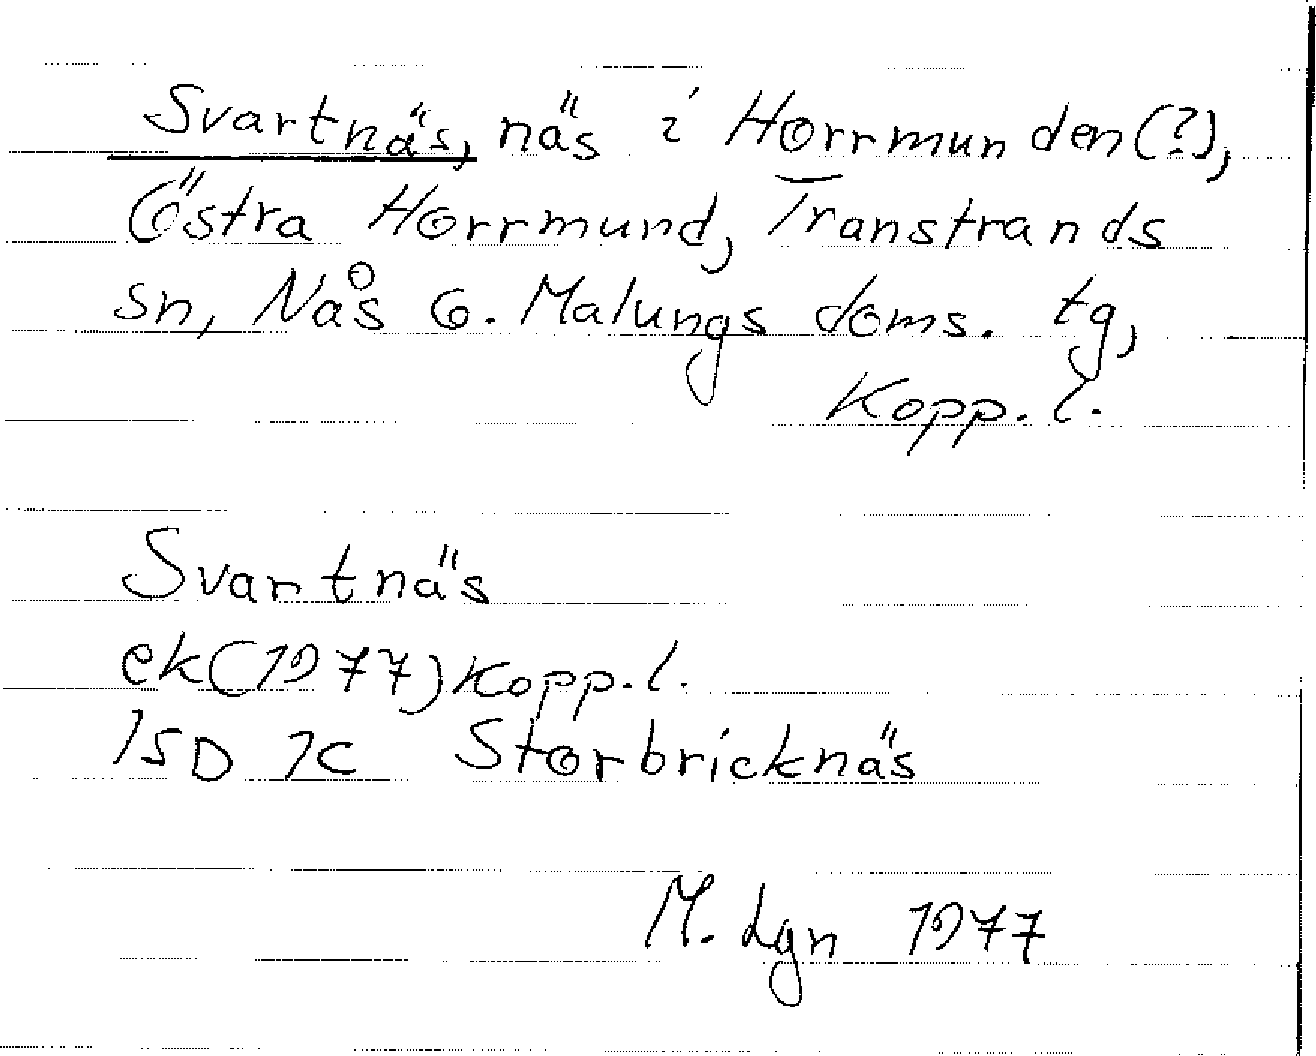 Svartnäs, näs i Horrmunden(?),
Östra Horrmund, Transtrands
sn, Nås o. Malungs doms. tg,
Kopp. l.
Svartnäs
ek(1977)Kopp. l.
15D 1C Storbricknäs
M. Lgn 1977